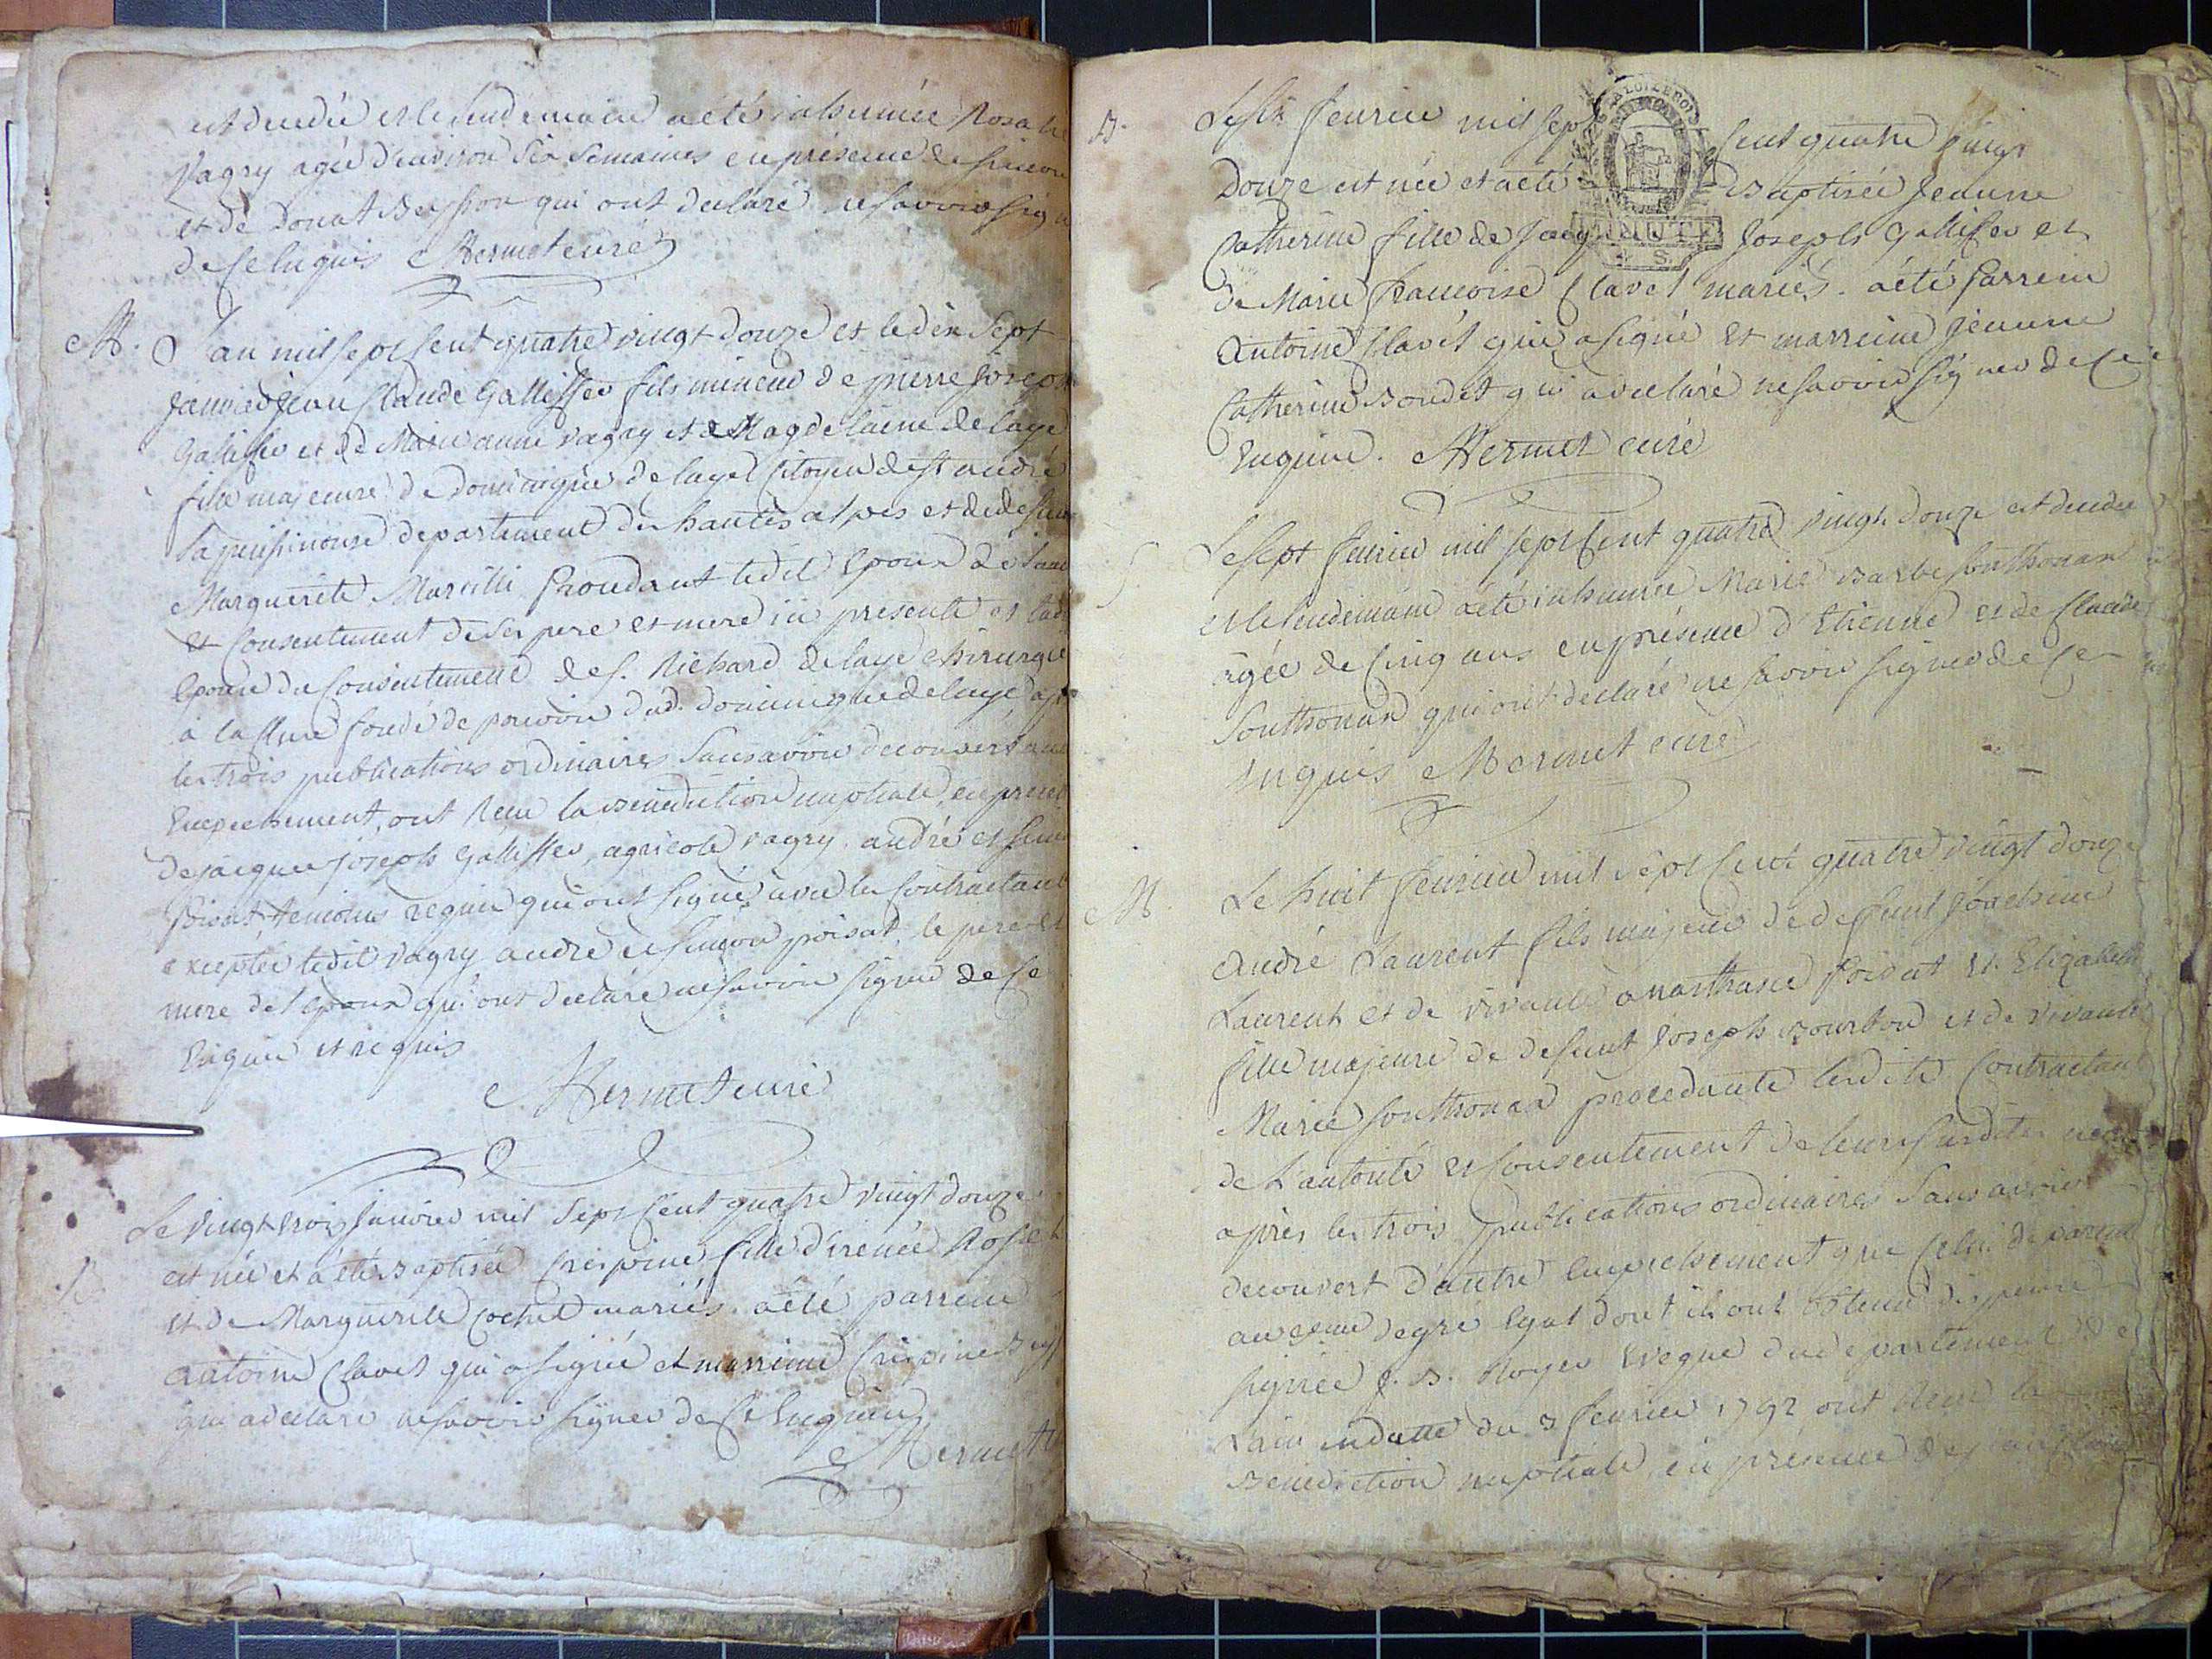 est decedée et le lendemain a été inhumée Rosalie
Vagry agée d'environ six semaines en présence de simeon
et de Donat qui ont declaré ne savoir sign
de ce enquis Mermet curé
M. L'an mil sept cent quatre vingt douze et le dix sept
janvier jean claude Gallisser fils mineur de pierre joseph
Gallisser et de Marie anne vagry et Magdelaine delaye
fille majeure de dominique delaye citoyen de st andré
departement des hautes alpes et de defunte
Marguerite procedant ledit epoux de
et consentement de ses pere et mere ici presents et lad
epouse du consentement de s. Richard delaye chirurgie
à la fondé de pouvoir dud. dominique delaye, ap
les trois publications ordinaires sans avoir decouvert auc
empechement, ont recu la Benediction nuptiale, en presen
de jacques joseph Gallisser, agricole vagry, andré et sime
Poisat, temoins requis qui ont signés avec les contractants
excepté ledit vagry andré et simeon poisat, le pere et
mere de l'epoux qui ont declaré ne savoir signer de ce
enquis et requis
Mermet curé
Le vingt trois janvier mil sept cent quatre vingt douze
est née et a été Baptisée Crespine fille d'irenée Rosset
et de Marguerite mariés. a été parrein
antoine Clavet qui a signé et marreine Crespine
qui a declaré ne savoir signer de ce enquise
Mermet
B. Le six fevrier mil sept cent quatre vingt
Douze est née et a été Baptisée jeanne
Catherine fille de Jacques Joseph Gallisser et
de Marie françoise Clavet mariés. a été Parrein
Antoine Clavet qui a signé et marreine jeanne
Catherine Boudet qui a declaré ne savoir signer de ce
Enquise. Mermet curé
MINUTE
S. Le sept fevrier mil sept cent quatre vingt douze est decedée
et le lendemain a été inhumée Marie Barbe Southonax
agée de cinq ans en présence d'Etienne et de Claude
Southonax qui ont declaré ne savoir signer de ce
enquis Mermet curé
M. Le huit fevrier mil sept cent quatre vingt douze
André Laurent fils majeur de defunt joachim
Laurent et de vivante anasthasie Poisat et Elizabeth
fille majeure de defunt joseph Bourbon et de vivante
Marie Southonax procedants lesdits contractants
de L'autorité et consentement de leurs susdites mere
après les trois publications ordinaires sans avoir
decouvert d'autre empechement que celui de parenté
au degré egal dont ils ont obtenu dispense
signée j. B. Royer Eveque du departement de
L'ain en datte du 3 fevrier 1792 ont recu la
Benediction nuptiale, en présence des